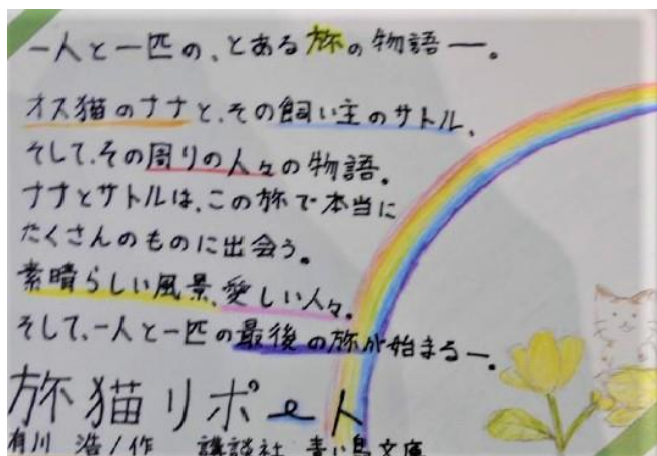 一人と一匹の、とある旅の物語―。
オス猫のナナと、その飼い主のサトル、
そして、その周りの人々の物語。
ナナとサトルは、この旅で本当に
たくさんのものに出会う。
素晴らしい風景、愛しい人々。
そして、一人と一匹の最後の旅が始まる―。
旅猫リポート
有川 浩/作 講談社 青い鳥文庫